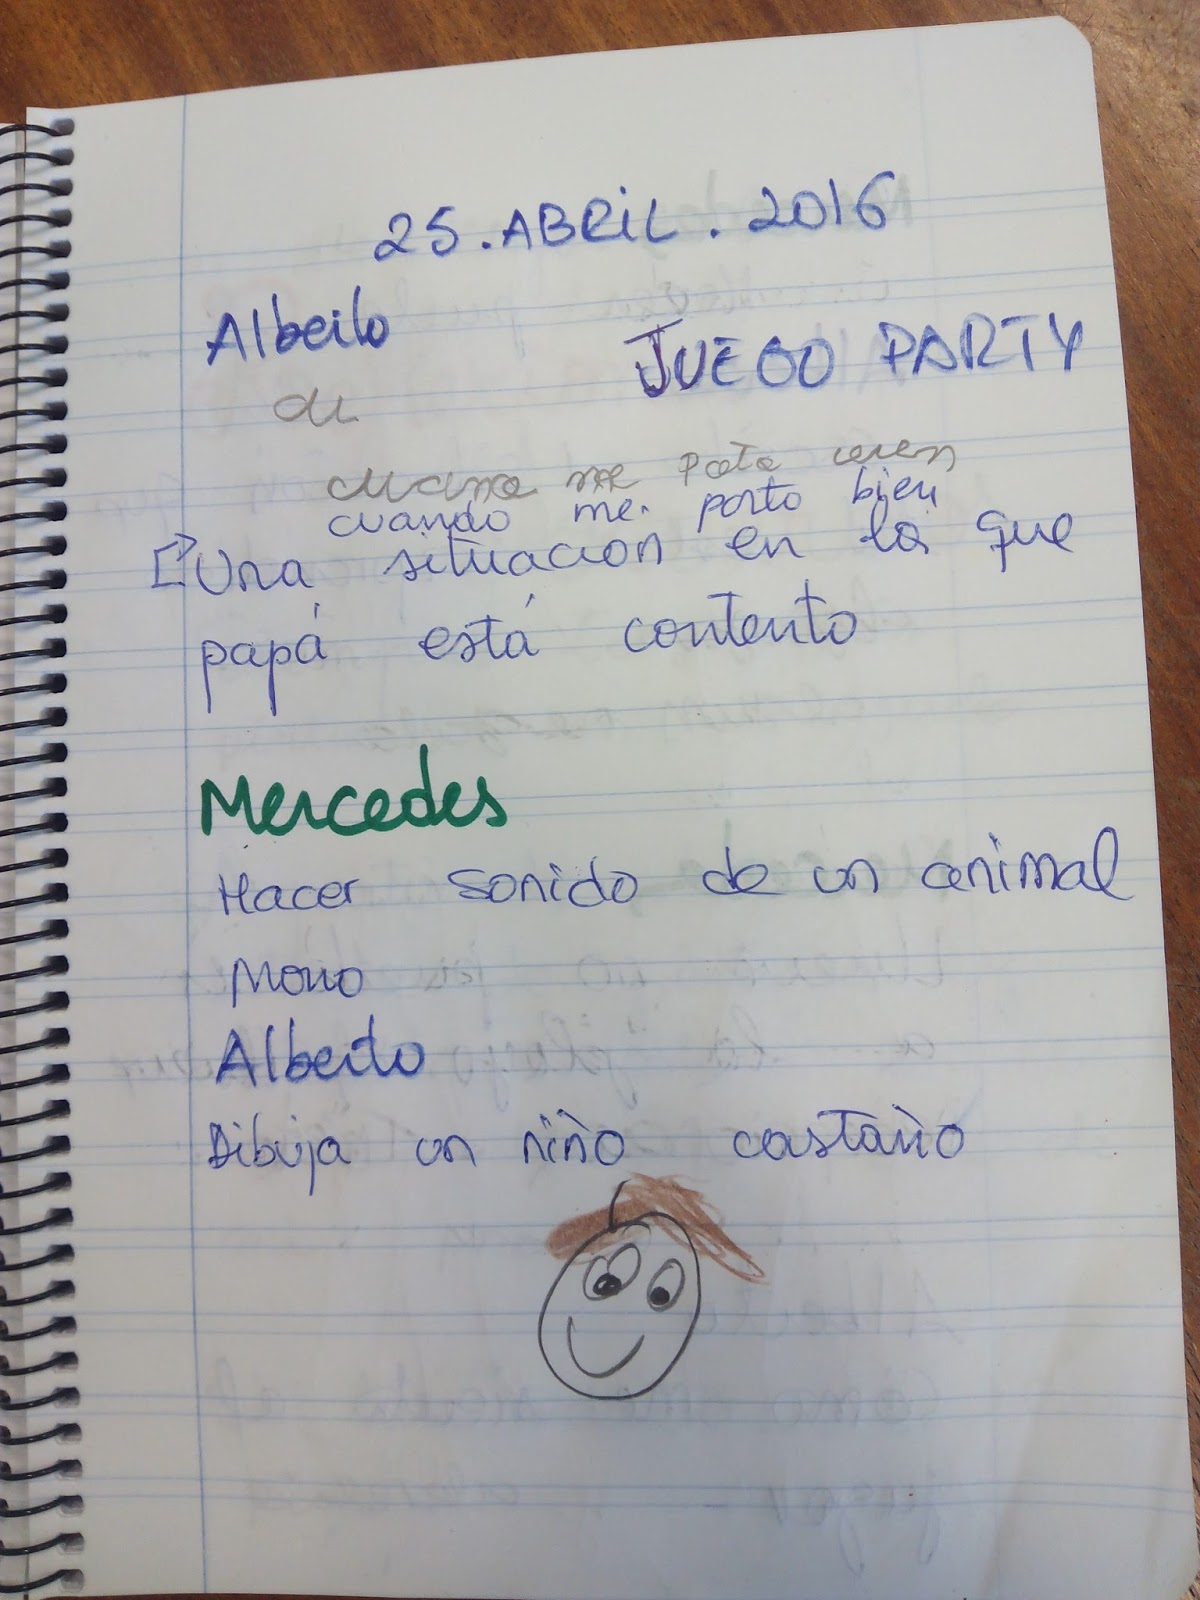 25. ABRIL. 2016
Alberto
JUEGO PARTY
cu
me pota
cuando me porto bien
Una situacion en la que
papá está contento
Mercedes
Hacer sonido de un animal
Mono
Alberto
Dibuja un niño castaño